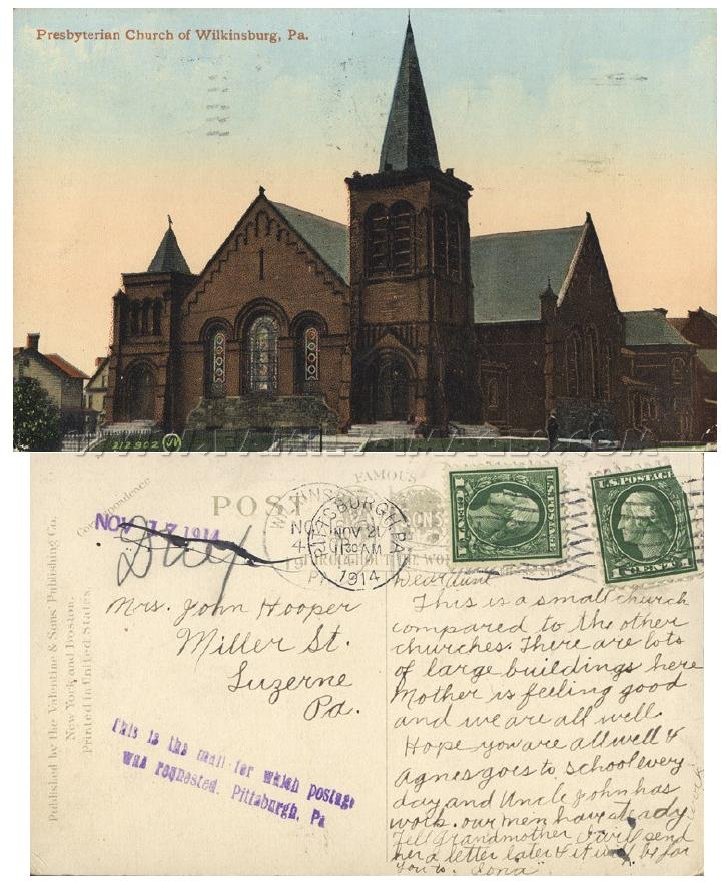 Presbyterian Church of Wilkinsburg, Pa.
212902
Correspondence
POST
FAMOUS
Published by the Valentine & Sons Publishing Co.
New York and Boston.
Printed in United States.
NOV 17 1914
Due
WILKINSBURG
PA
PITTSBURGH, PA.
NOV 21
1130 AM
1914
U.S. POSTAGE
1 CENT 1
U.S. POSTAGE
1 CENT 1
Mrs. John Hooper
Miller St.
Luzerne
Pa.
This is the mail for which postage
was requested. Pittsburgh, Pa
Dear Aunt
This is a small church
compared to the other
churches. There are lots
of large buildings here
Mother is feeling good
and we are all well.
Hope you are all well &
Agnes goes to school every
day and Uncle John has
work. our men have steady
Tell Grandmother I will send
her a letter later & it will be for